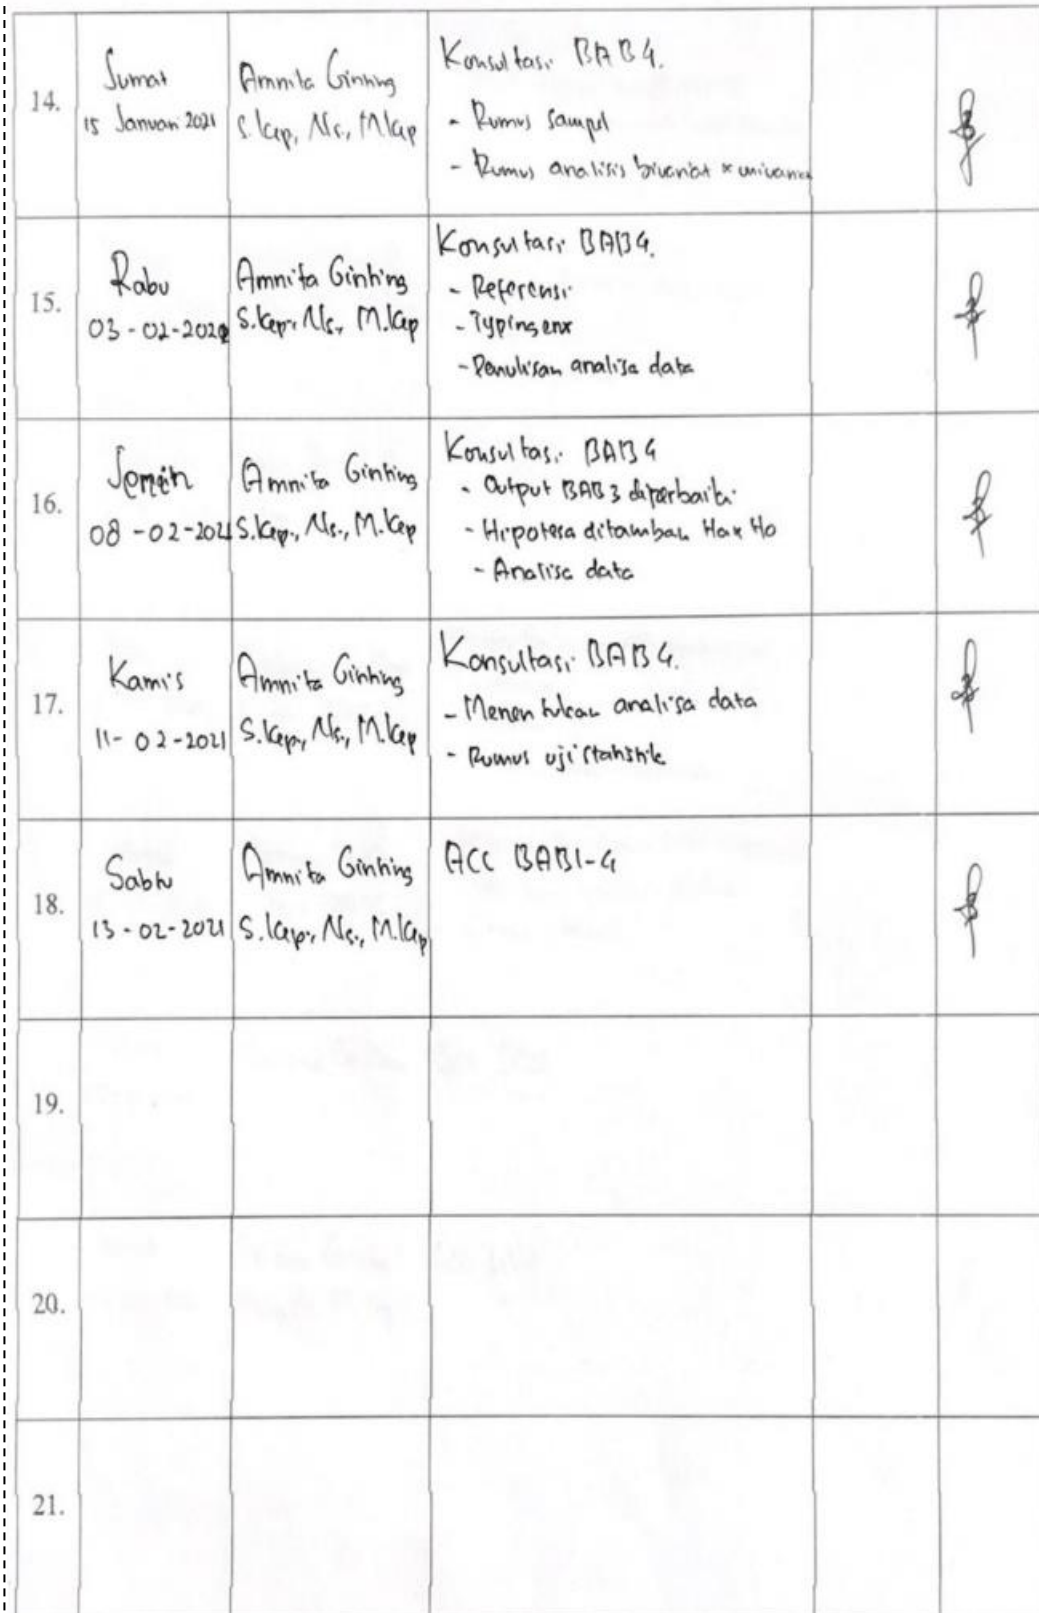 14.
Jumat
15 Januari 2021
Amnita Ginting
S.Kep, Ns., M.Kep
Konsultasi BAB 4.
- Rumus Sampel
- Rumus analisis bivariat &
15.
Rabu
03-02-2021
Amnita Ginting
S.Kep., Ns., M.Kep
Konsultasi BAB 4.
- Referensi
- Typing
- Penulisan analisa data
16.
Senin
08-02-2021
Amnita Ginting
S.Kep., Ns., M.Kep
Konsultasi BAB 4
- Output BAB 3 diperbaiki
- Hipotesa ditambah Ha & Ho
- Analisa data
17.
Kamis
11-02-2021
Amnita Ginting
S.Kep., Ns., M.Kep
Konsultasi BAB 4.
- Menentukan analisa data
- Rumus uji statistik
18.
Sabtu
13-02-2021
Amnita Ginting
S.Kep., Ns., M.Kep
ACC BAB 1-4
19.
20.
21.